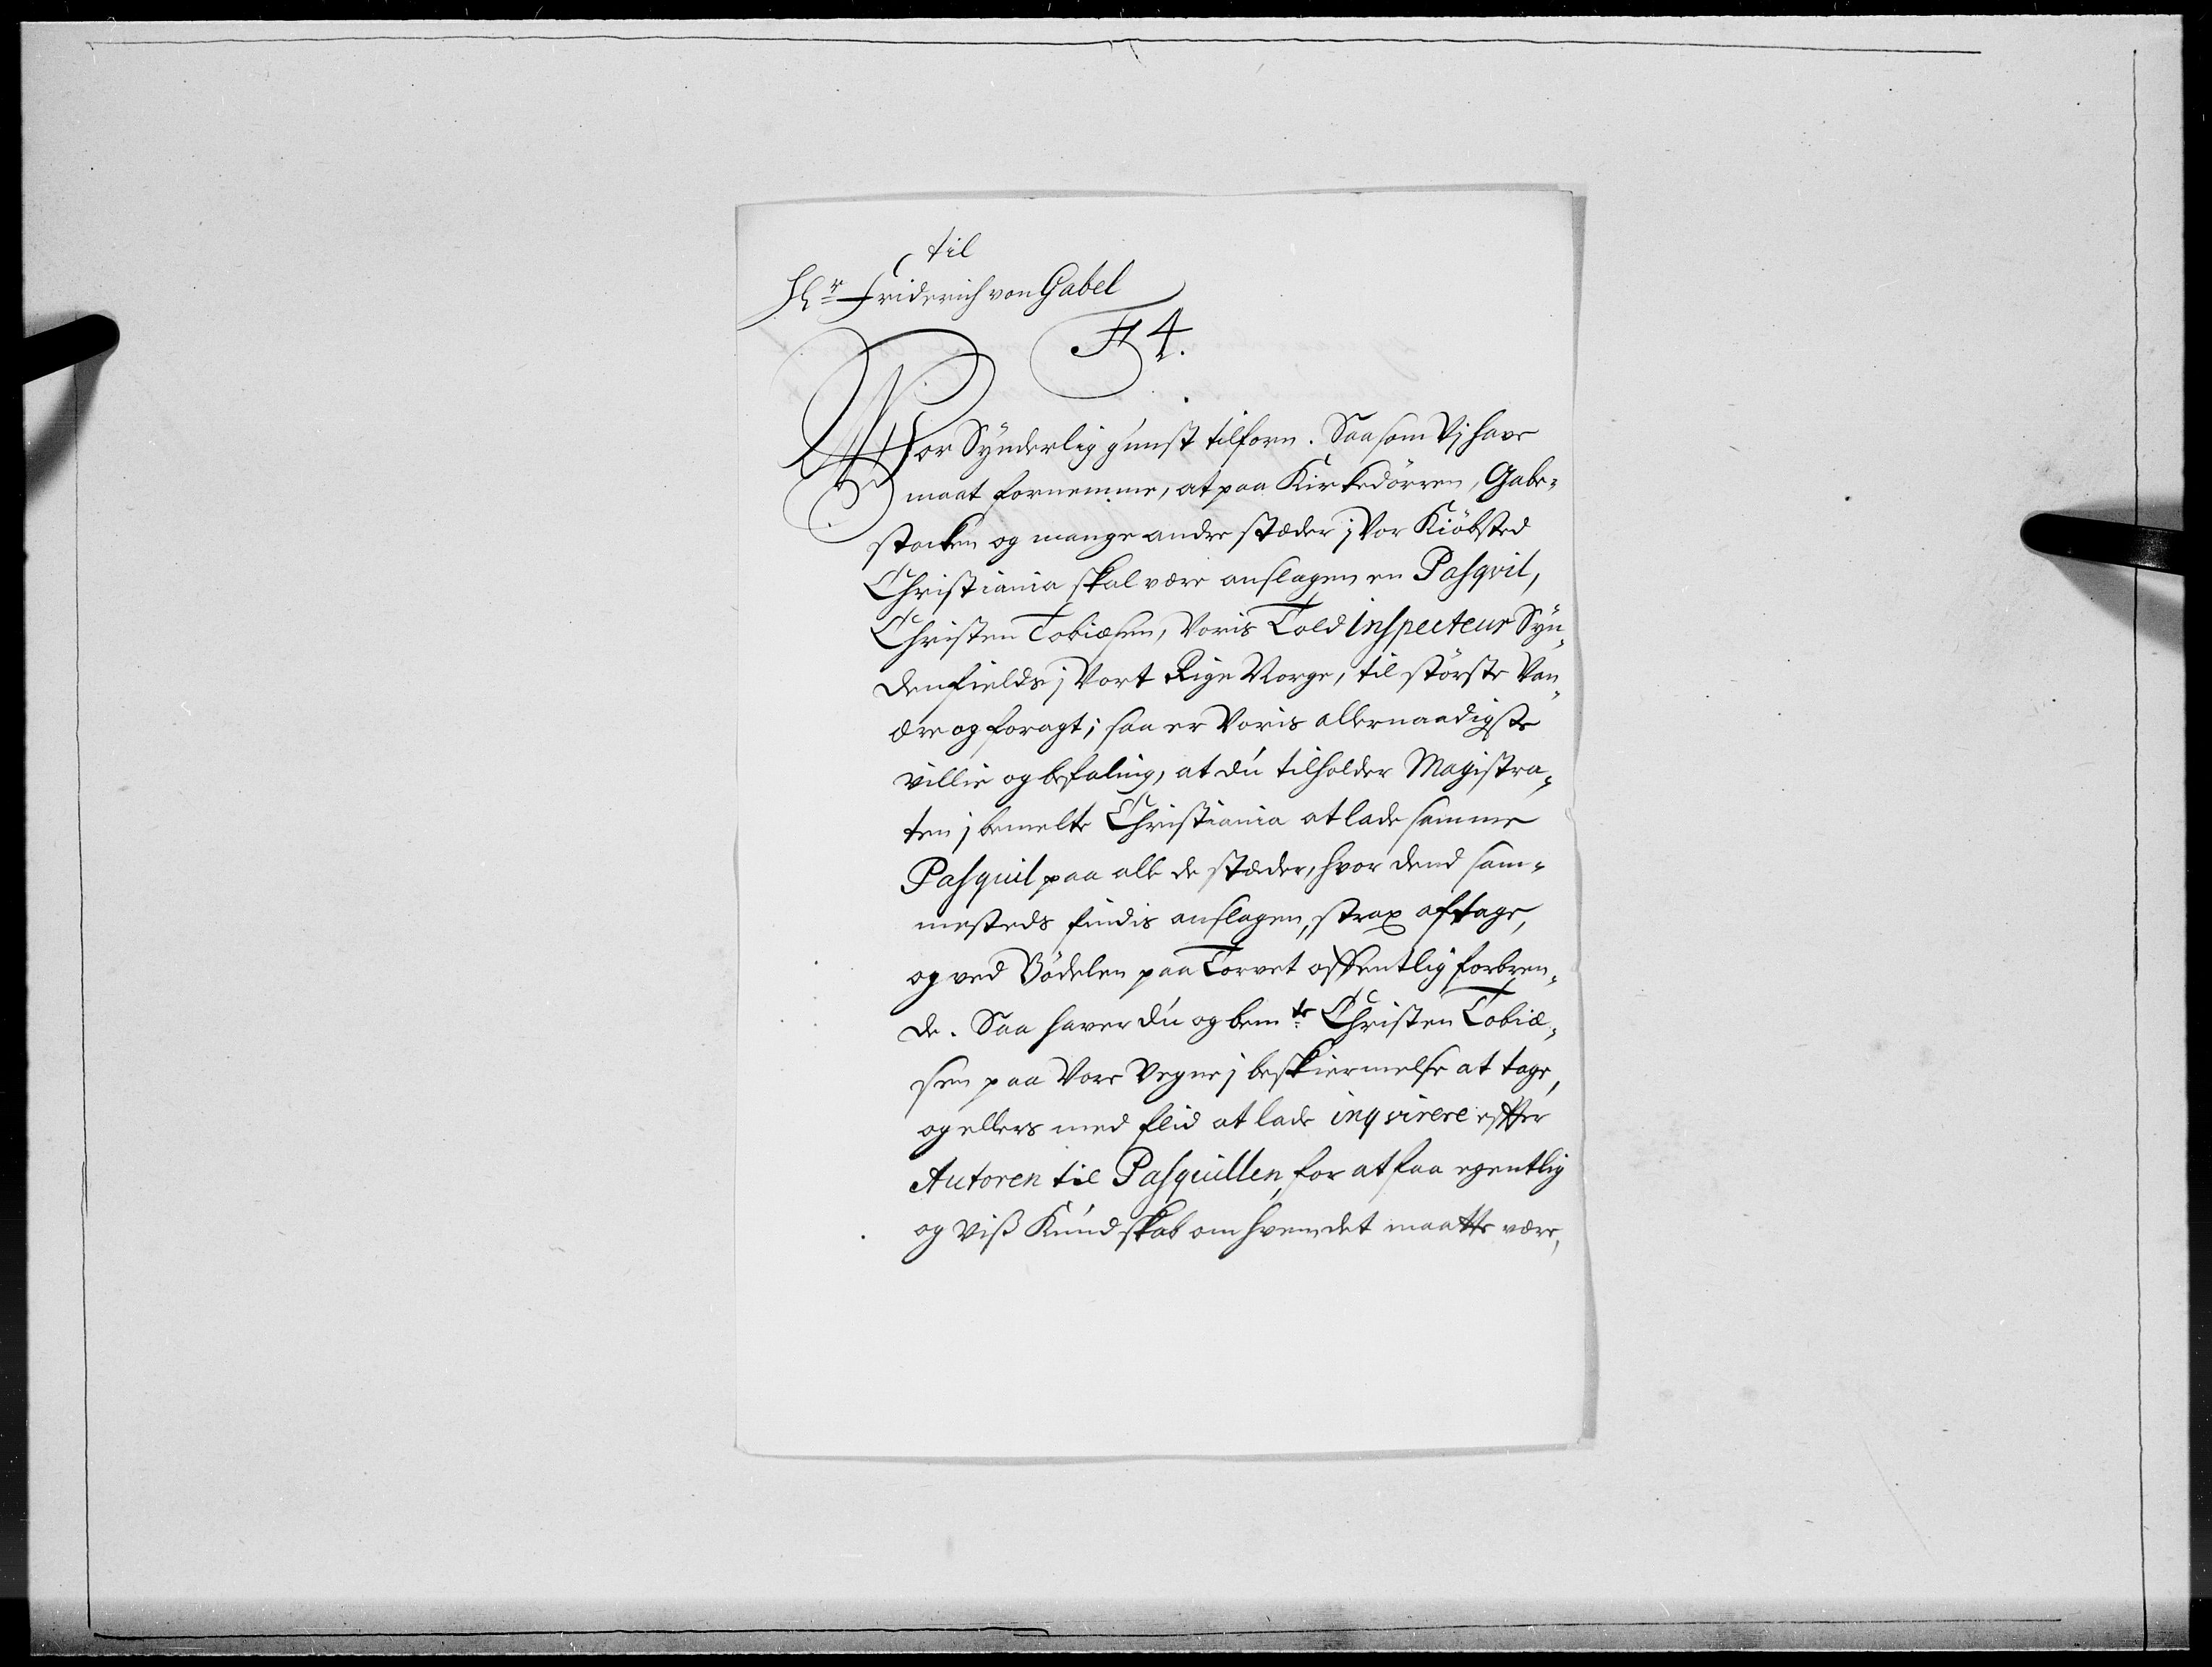 til
Hr. Friderich von Gabel
F 4.
Vor Synderlig gunst tilforn. Saasom Vj have
maat fornemme, at paa Kirkedörren, Gabe-
stocken og mange andre stæder j Vor Kiöbsted
Christiania skal være anslagen en Pasqvil,
Christen Tobiæsen, Voris Told Inspecteur Syn-
denfields j Vort Rige Norge, til störste Van-
ære og foragt; saa er Voris allernaadigste
villie og befaling, at du tilholder Magistra-
ten j bemelte Christiania at lade samme
Pasquil paa alle de stæder, hvor dend sam-
mesteds findis anslagen, strax aftage,
og ved Bödelen paa Torvet offentlig forbren-
de. Saa haver du og bemte Christen Tobiæ-
sen paa Vore Vegne j beskiermelse at tage,
og ellers med flid at lade inqvirere effter
Autoren til Pasquillen, for at faa egentlig
og viß Kundskab om hvem det maatte være,